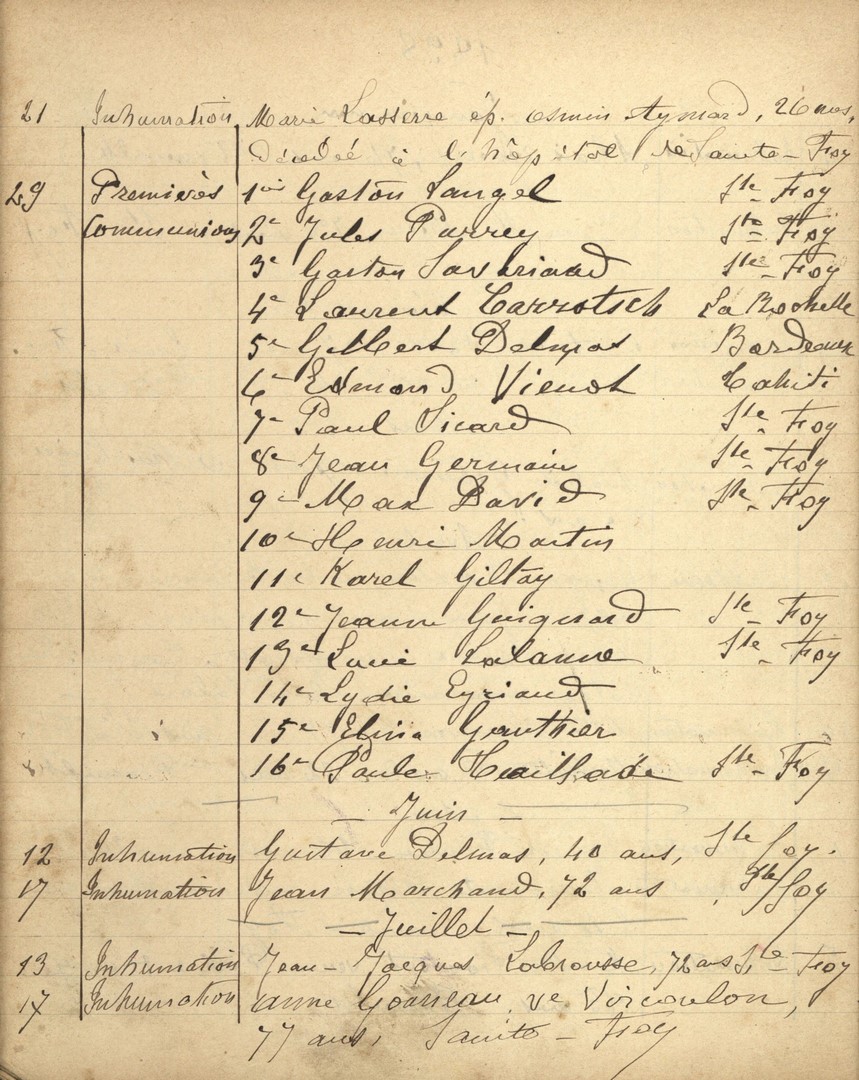 21 Inhumation Marie Lasserre ép. Osmin Aymard, 26 ans,
décédée à l'hôpital de Sainte-Foy
29 Premières 1er Gaston Langel Ste-Foy
Communions 2e Jules Parrey Ste-Foy
3e Gaston Ste-Foy
4e Laurent Carrotsch La Rochelle
5e Gilbert Delmas Bordeaux
6e Edmond Vienot Tahiti
7e Paul Sicard Ste-Foy
8e Jean Germain Ste-Foy
9e Max David Ste-Foy
10e Henri Martin
11e Karel Giltay
12e Jeanne Guignard Ste-Foy
13e Lalanne Ste-Foy
14e Lydie Eyriaud
15e Elina Gauthier
16e Paule Ste-Foy
- Juin -
12 Inhumation Gustave Delmas, 40 ans, Ste foy.
17 Inhumation Jean Marchand, 72 ans, Ste foy
- Juillet -
13 Inhumation Jean-Jacques Labrousse, 72 ans Ste-Foy
17 Inhumation Anne Gousseau, ve Vircoulon,
77 ans, Sainte-Foy